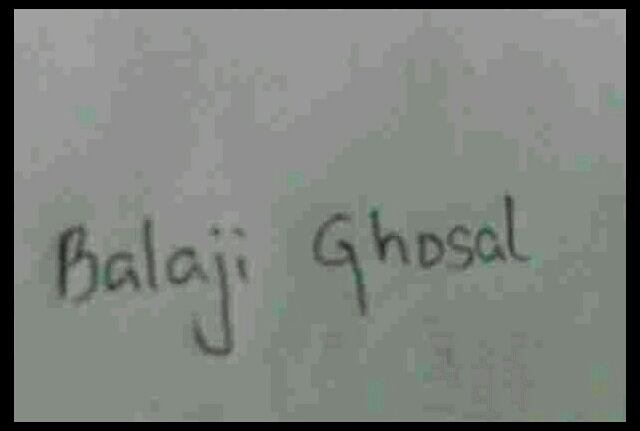 Balaji Ghosal